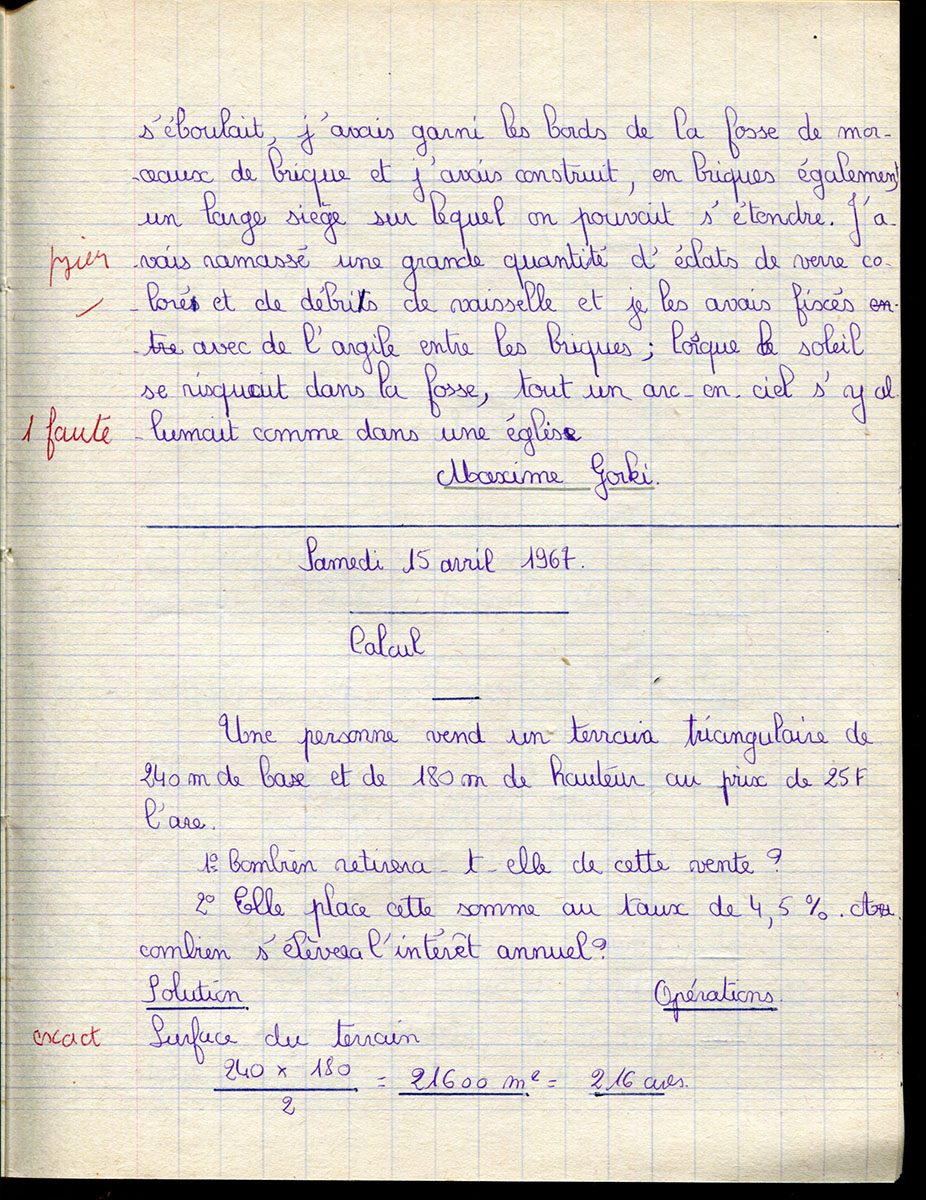 s'éboulait, j'avais garni les bords de la fosse de mor-
-ceaux de brique et j'avais construit, en briques également
un large siège sur lequel on pouvait s'étendre. J'a-
-vais ramassé une grande quantité d'éclats de verre co-
-lorés et de débris de vaisselle et je les avais fixés en-
-tre avec de l'argile entre les briques ; lorsque le soleil
se risquait dans la fosse, tout un arc-en-ciel s'y al-
1 faute -lumait comme dans une église
Maxime Gorki.
Samedi 15 avril 1967.
Calcul
Une personne vend un terrain triangulaire de
240 m de base et de 180 m de hauteur au prix de 25 F
l'are.
1º Combien retirera-t-elle de cette vente ?
2º Elle place cette somme au taux de 4,5 %.
combien s'élèvera l'intérêt annuel ?
Solution Opérations.
exact Surface du terrain
240 x 180
= 21600 m² = 216 ares.
2